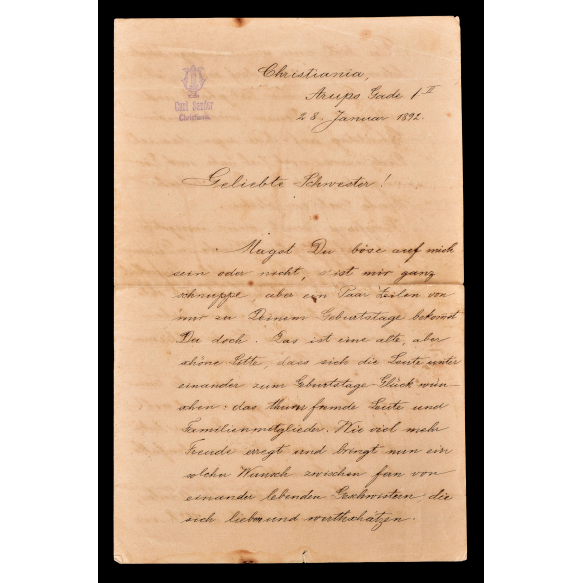 Carl
Christiania.
Christiania,
Arups Gade 1 II
28. Januar 1892.
Geliebte Schwester!
Magst Du böse auf mich
sein oder nicht, s'ist mir ganz
schnuppe, aber ein Paar Zeilen von
mir zu Deinem Geburtstage bekomst
Du doch. Das ist eine alte, aber
schöne Sitte, dass sich die Leute unter
einander zum Geburtstage Glück wün-
schen; das thun fremde Leute und
Familienmitglieder. Wie viel mehr
Freude erregt und bringt nun ein
solcher Wunsch zwischen fern von
einander lebenden Geschwistern die
sich lieben und werthschätzen.